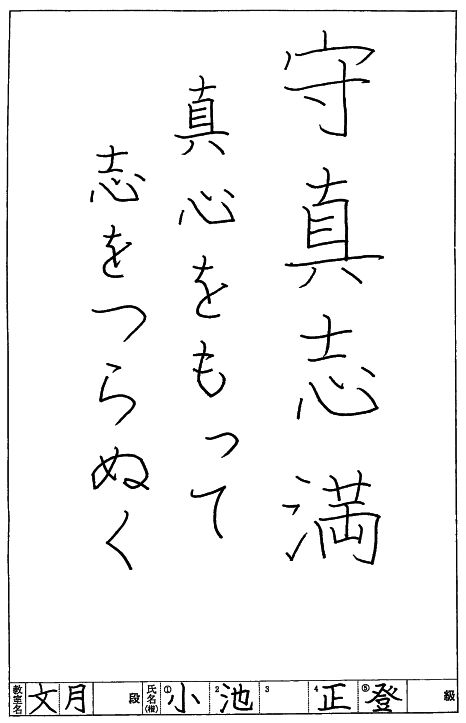 守真志満
真心をもって
志をつらぬく
教室名 文月 段 氏名(横) ①小 2池 3 4正 ⑤登 級